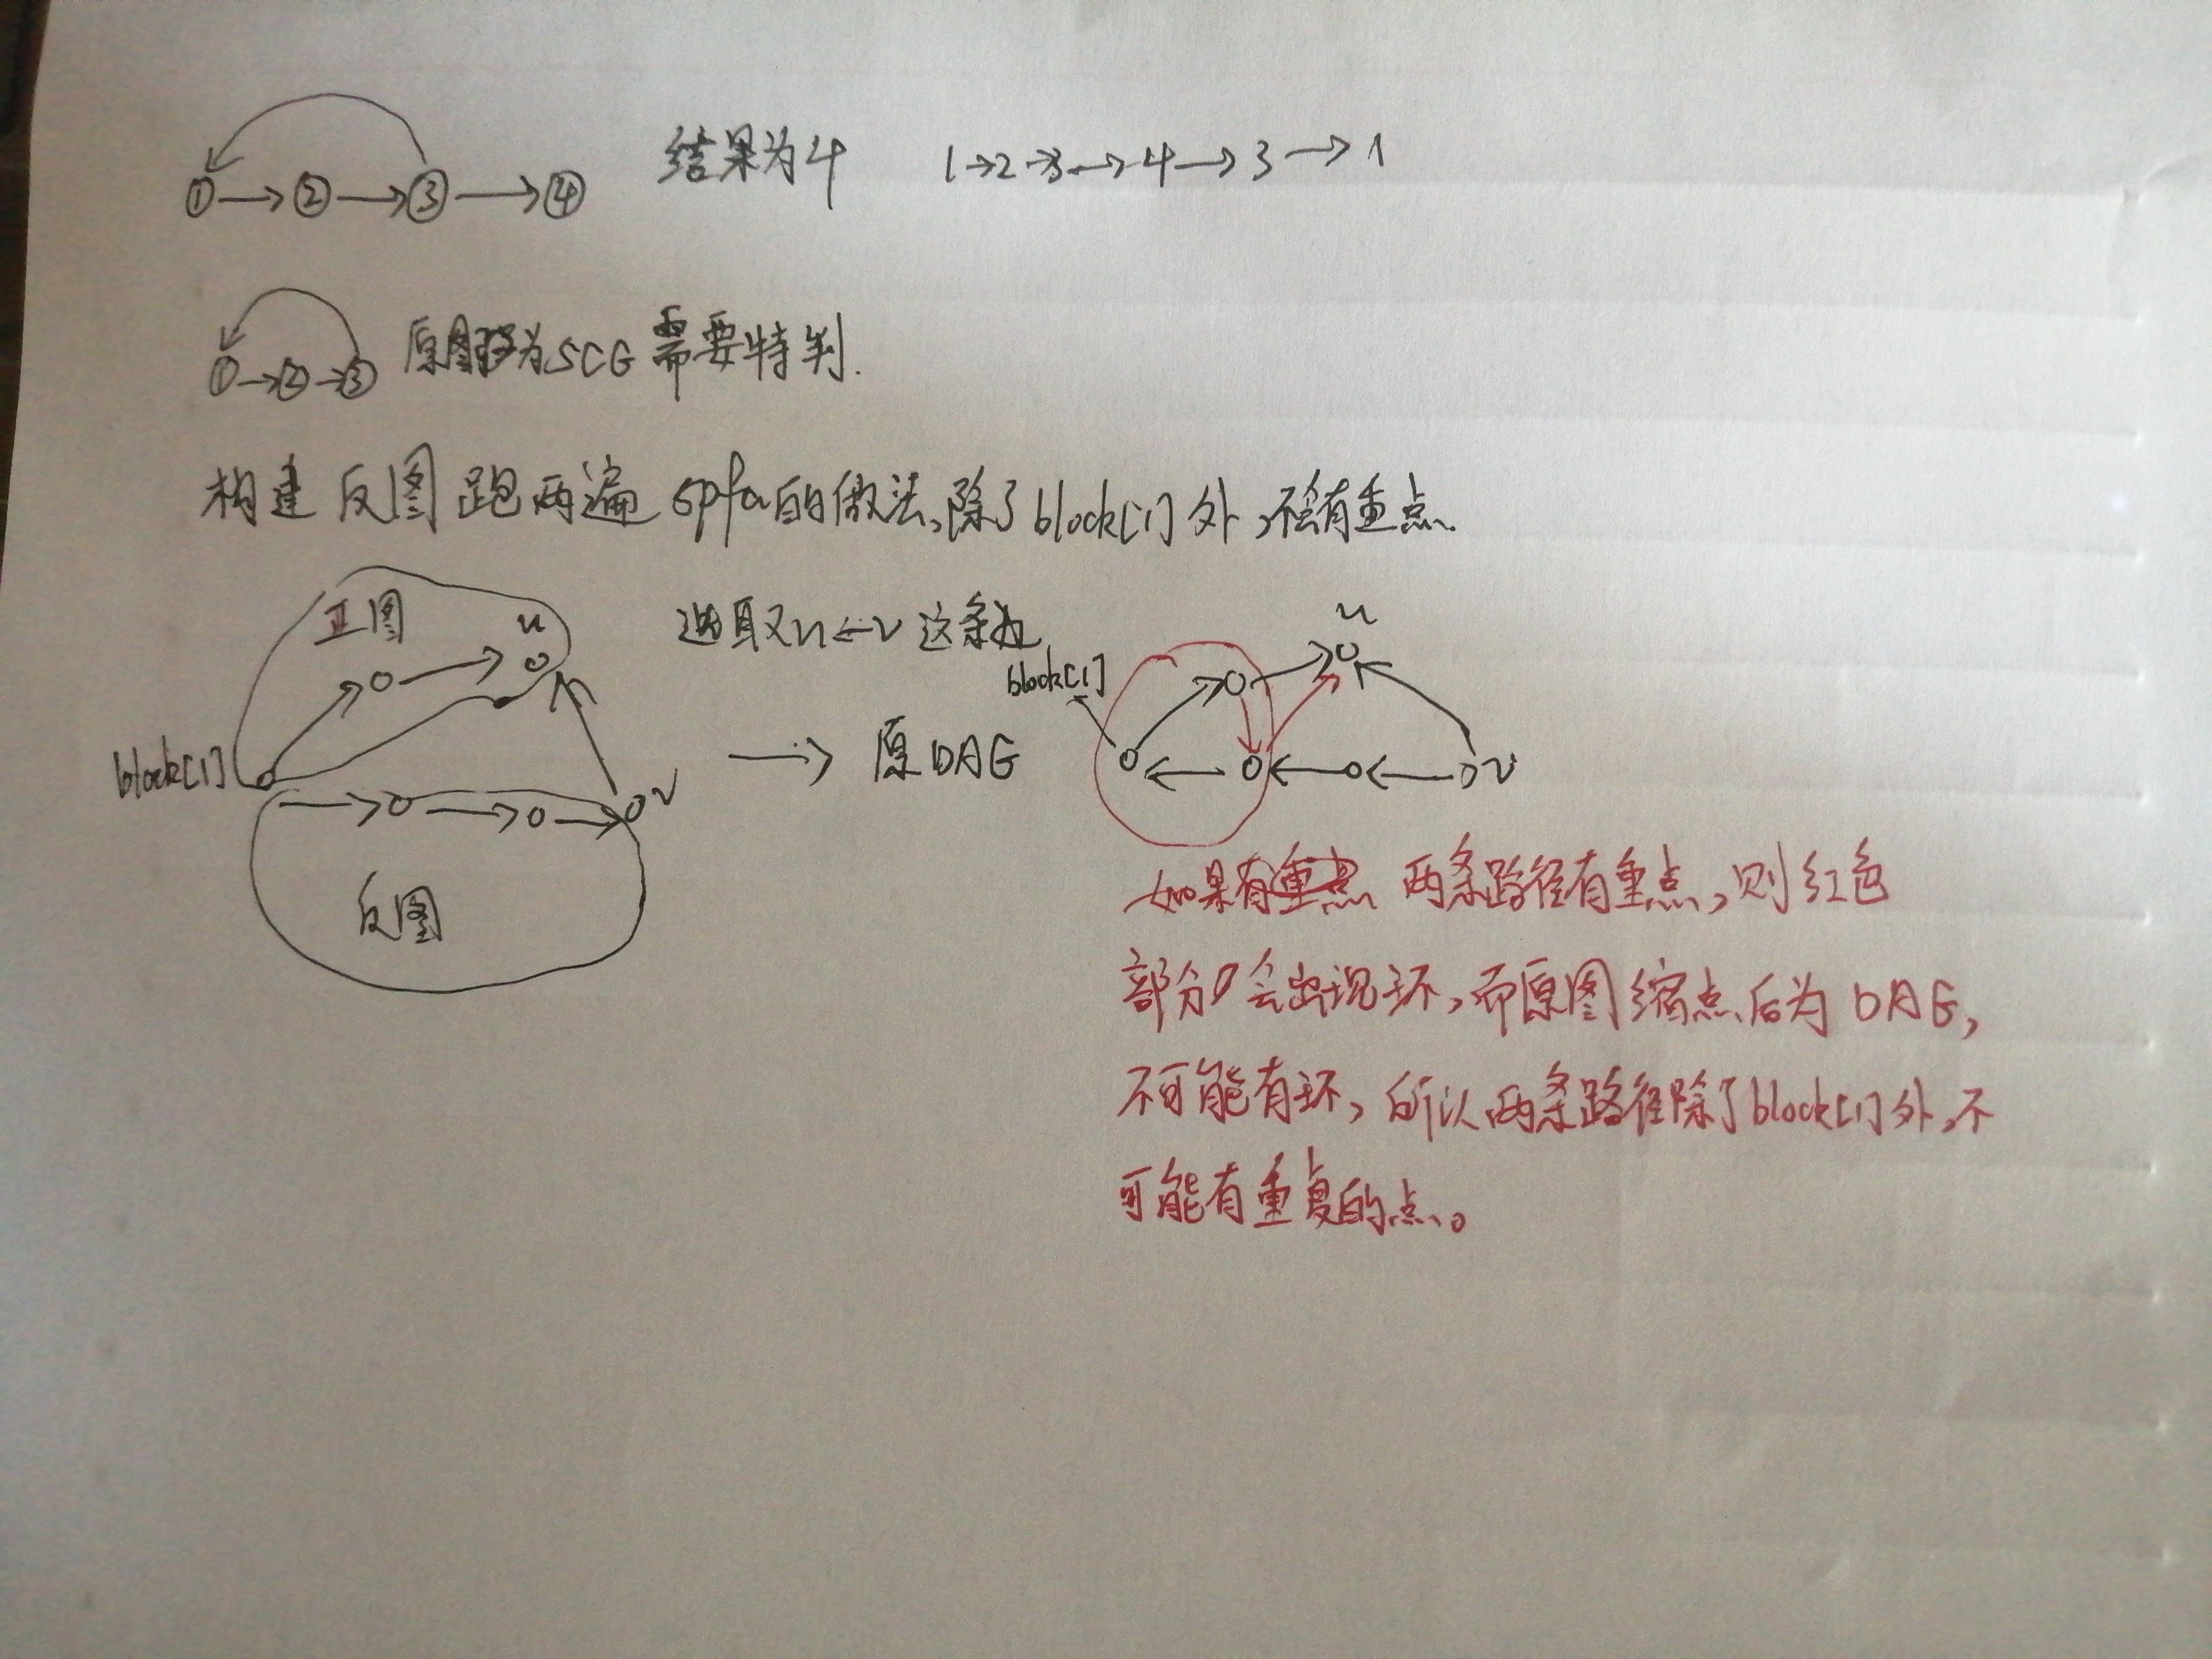 ① → ② → ③ → ④ 结果为4 1→2→3→4→3→1
① → ② → ③ 原图为SCG需要特判.
构建反图跑两遍spfa的做法,除了block[1]外,不会有重点.
正图 u 选取u←v这条边 u
block[1]
block[1] v → 原DAG v
反图
如果有重点 两条路径有重点,则红色
部分会出现环,而原图缩点后为DAG,
不可能有环,所以两条路径除了block[1]外,不
可能有重复的点。